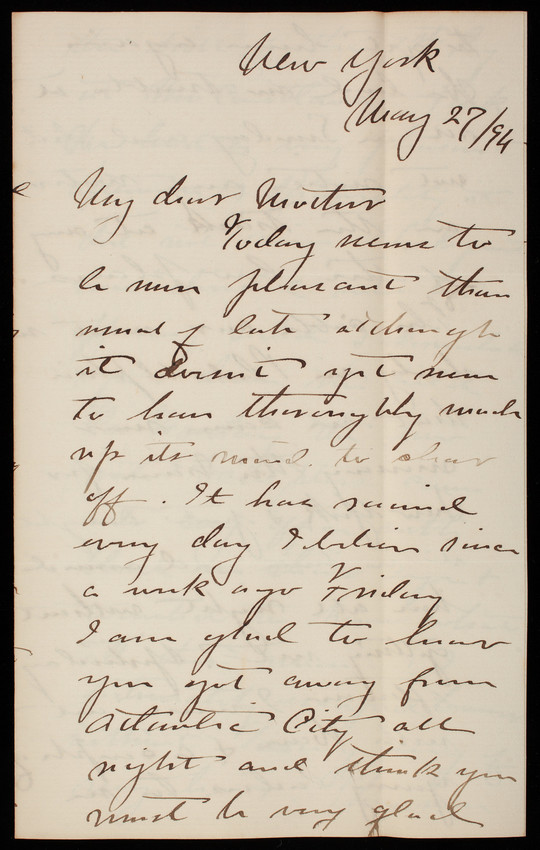 New York
May 27/94
My dear Mother
Today seems to
be more pleasant than
usual of late although
it doesn't yet seem
to have thoroughly made
up its mind to clear
off. It has rained
every day I believe since
a week ago Friday
I am glad to hear
you got away from
Atlantic City all
right and think you
must be very glad